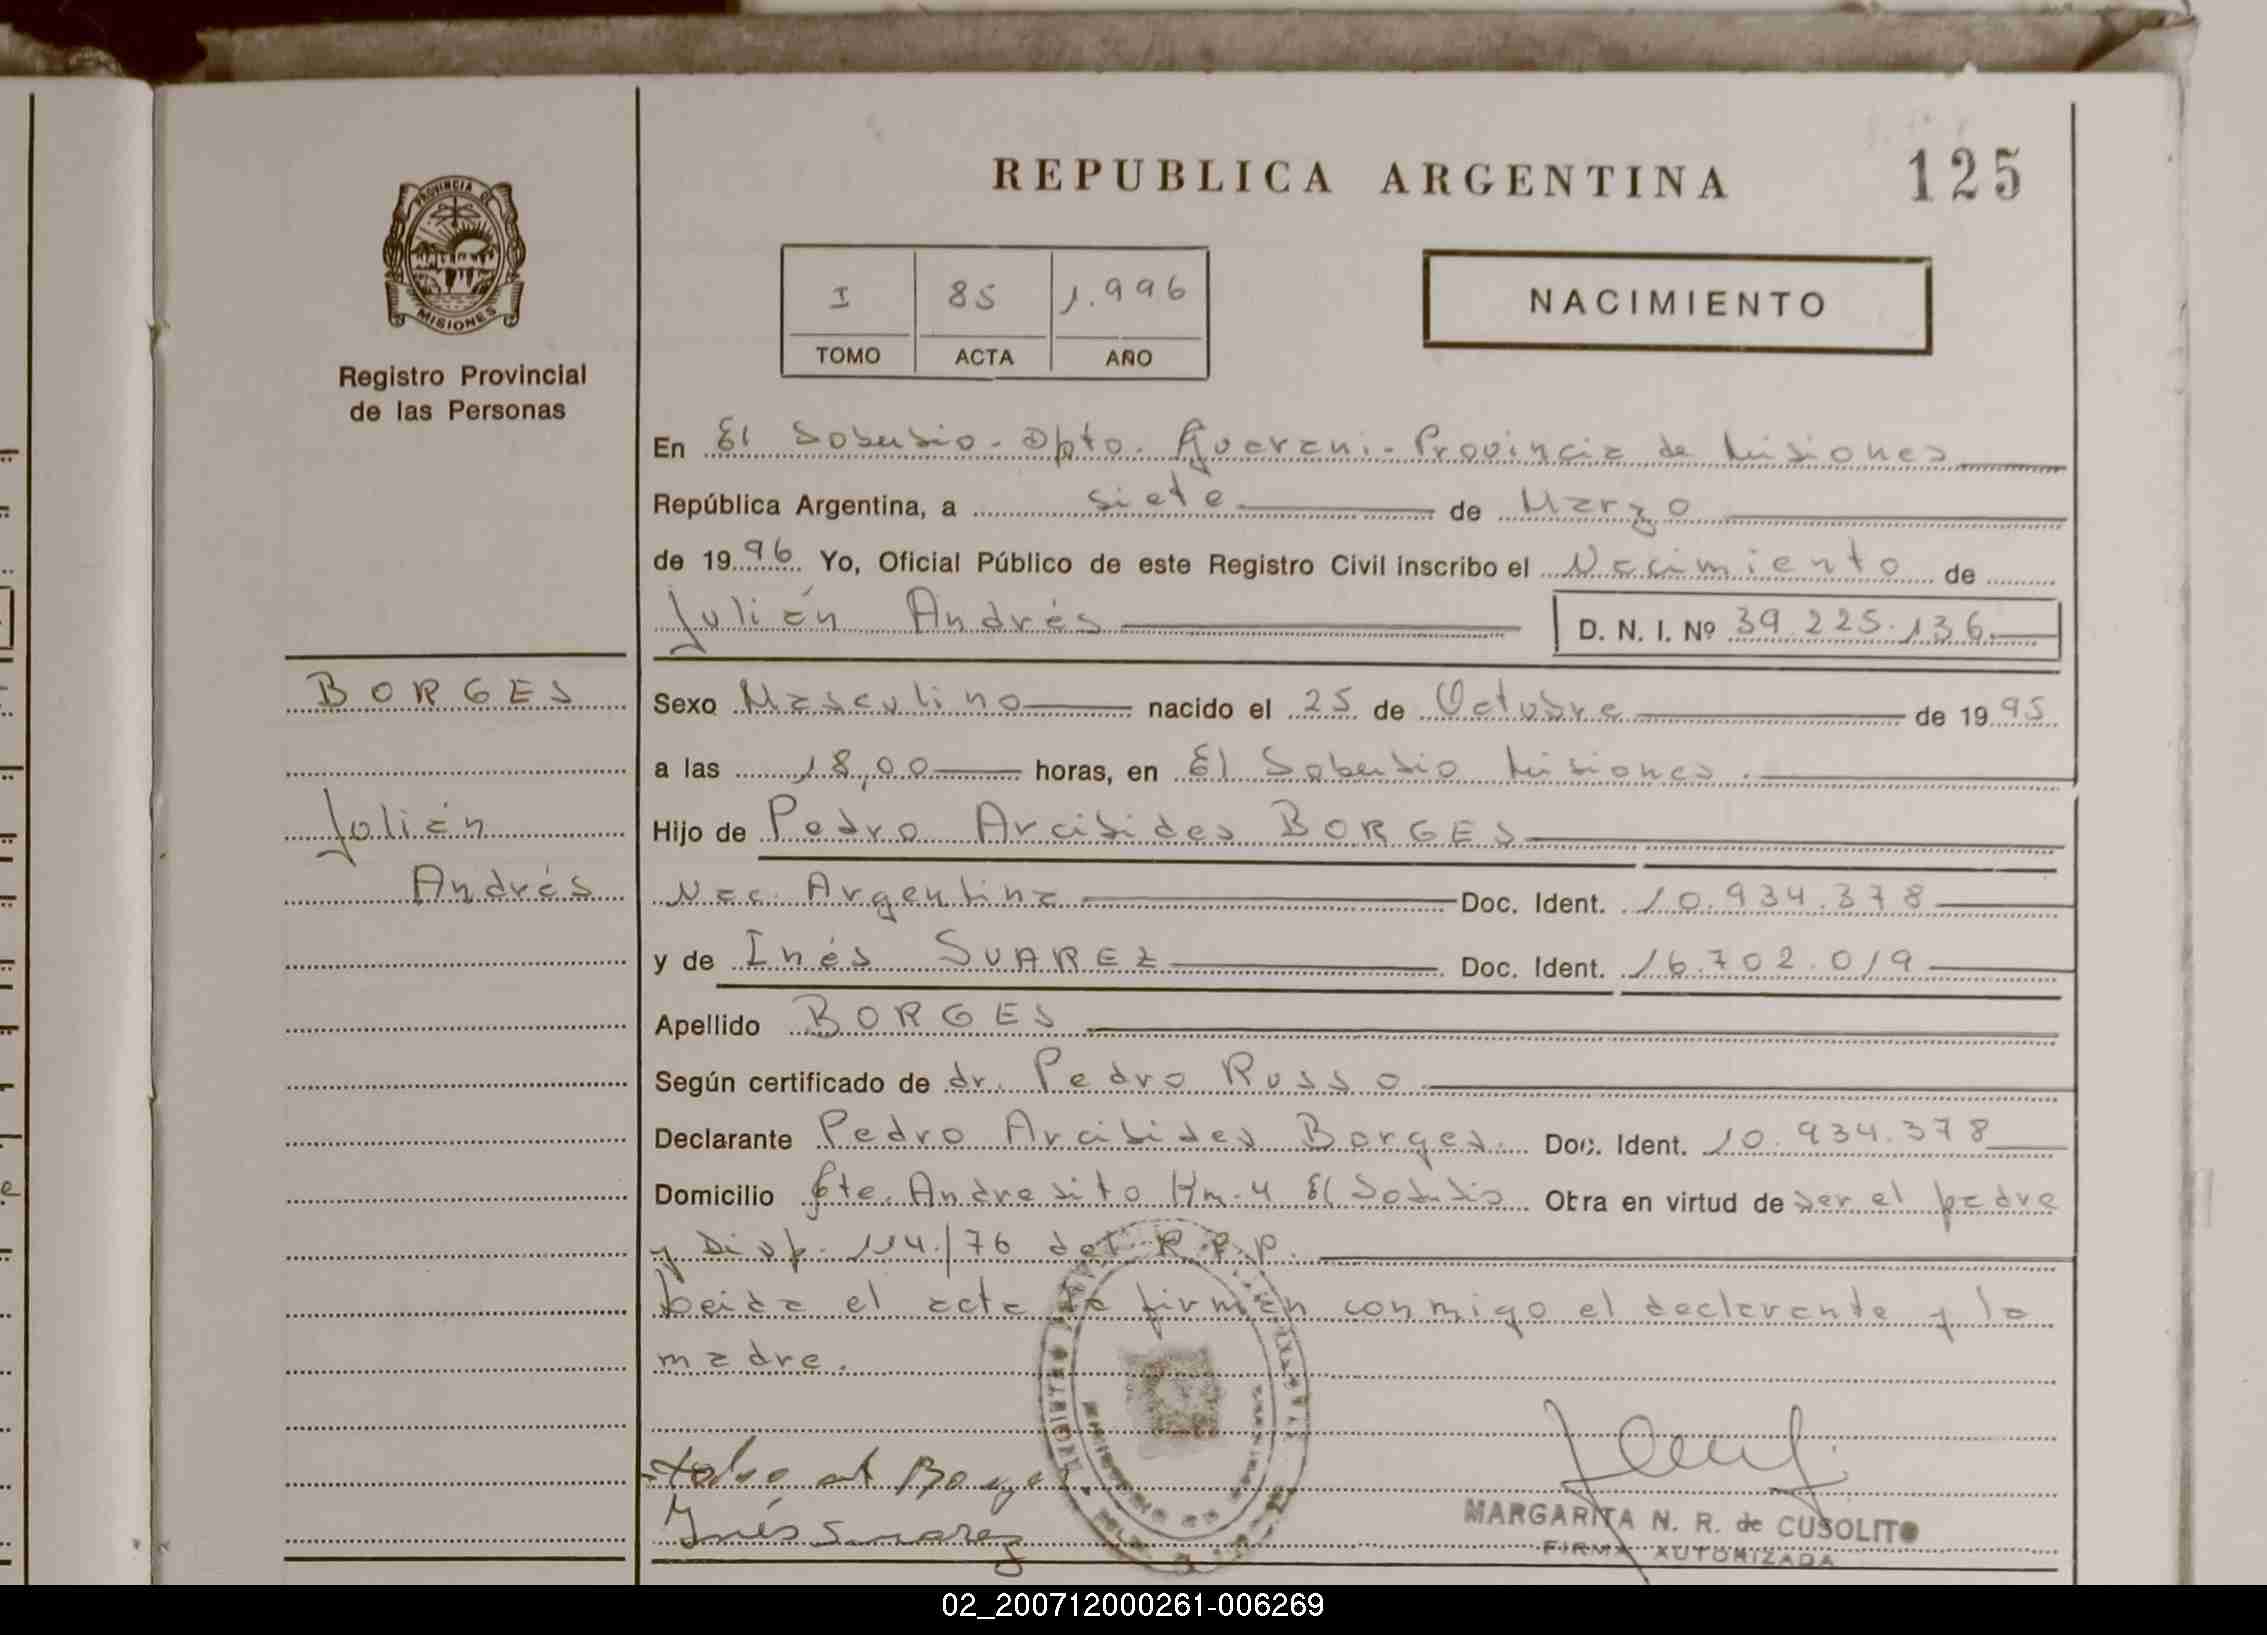 REPUBLICA ARGENTINA
125
PROVINCIA DE
MISIONES
Registro Provincial
de las Personas
I 85 1.996
TOMO ACTA AÑO
NACIMIENTO
En El Soberbio - Dpto. Guarani - Provincia de Misiones
República Argentina, a siete de Marzo
de 1996 Yo, Oficial Público de este Registro Civil inscribo el Nacimiento de
Julián Andrés D. N. I. Nº 39.225.136
BORGES
Julián
Andrés
Sexo Masculino nacido el 25 de Octubre de 1995
a las 18,00 horas, en El Soberbio Misiones.
Hijo de Pedro Arcibides BORGES
Nac. Argentina Doc. Ident. 10.934.378
y de Inés SUAREZ Doc. Ident. 16.702.019
Apellido BORGES
Según certificado de dr. Pedro Russo
Declarante Pedro Arcibides Borges. Doc. Ident. 10.934.378
Domicilio Pte. Andresito Km. 4 El Soberbio Obra en virtud de ser el padre
y Disp. 114/76 del R.P.P.
Leída el acta la firman conmigo el declarante y la
madre.
Inés Suarez
MARGARITA N. R. de CUSOLITO
FIRMA AUTORIZADA
02_200712000261-006269